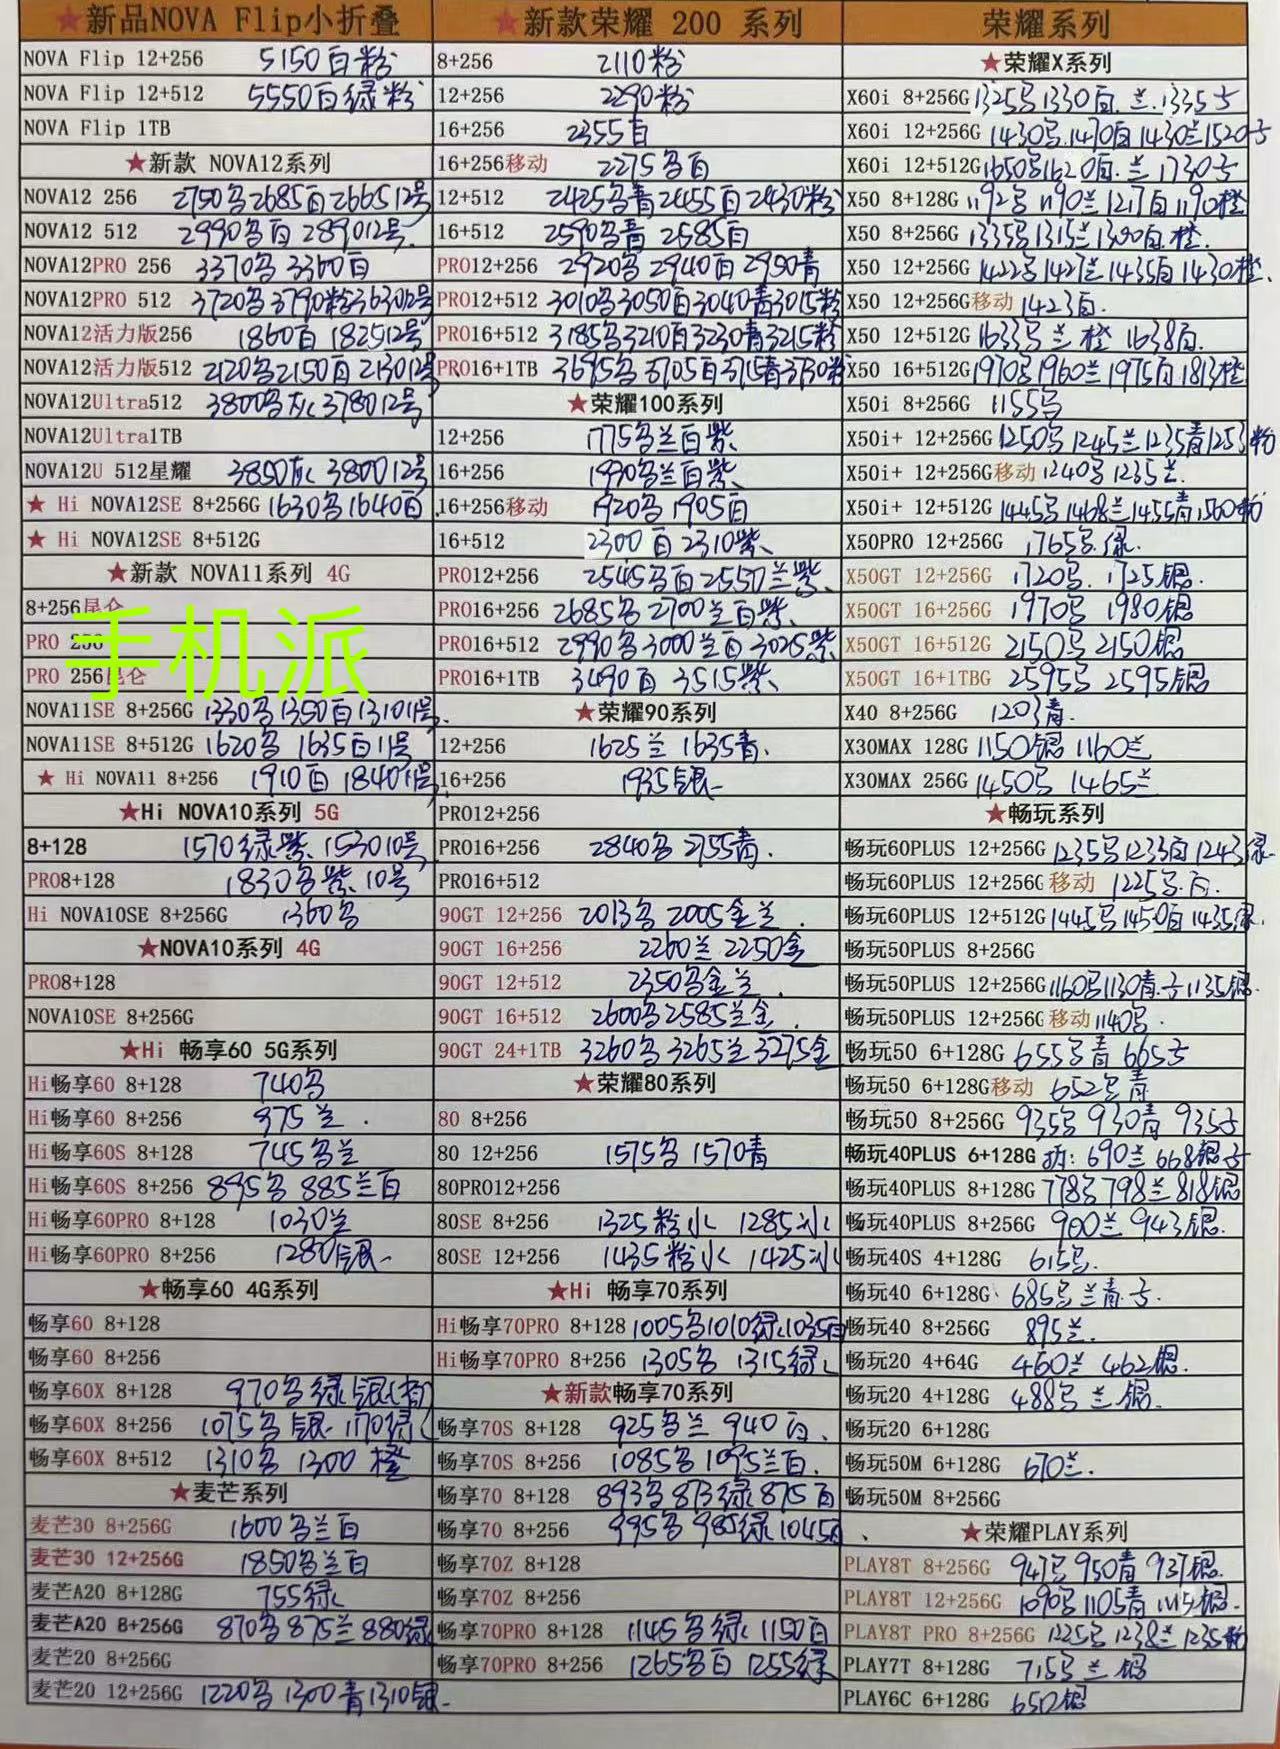 ★新品NOVA Flip小折叠
NOVA Flip 12+256 5150白粉
NOVA Flip 12+512 5550白绿粉
NOVA Flip 1TB
★新款 NOVA12系列
NOVA12 256 2750名2685白2665 12号
NOVA12 512 2990名白2890 12号
NOVA12PRO 256 3370名 3360白
NOVA12PRO 512 3720名3790粉3630 12号
NOVA12活力版256 1860白 1825 12号
NOVA12活力版512 2120名2150白2130 12号
NOVA12Ultra512 3800名灰3780 12号
NOVA12Ultra1TB
NOVA12U 512星耀 3850灰3800 12号
★ Hi NOVA12SE 8+256G 1630名1640白
★ Hi NOVA12SE 8+512G
★新款 NOVA11系列 4G
8+256昆仑
PRO 256
PRO 256昆仑
手机派
NOVA11SE 8+256G 1330名1350白1310 11号
NOVA11SE 8+512G 1620名 1635白11号
★ Hi NOVA11 8+256 1910白1840 11号
★Hi NOVA10系列 5G
8+128 1570绿紫1530 10号
PRO8+128 1830名紫10号
Hi NOVA10SE 8+256G 1360名
★NOVA10系列 4G
PRO8+128
NOVA10SE 8+256G
★Hi 畅享60 5G系列
Hi畅享60 8+128 740名
Hi畅享60 8+256 975兰
Hi畅享60S 8+128 745名兰
Hi畅享60S 8+256 895名885兰白
Hi畅享60PRO 8+128 1030兰
Hi畅享60PRO 8+256 1280银
★畅享60 4G系列
畅享60 8+128
畅享60 8+256
畅享60X 8+128 970名绿银
畅享60X 8+256 1075名银1170绿
畅享60X 8+512 1310名 1300橙
★麦芒系列
麦芒30 8+256G 1600名兰白
麦芒30 12+256G 1850名兰白
麦芒A20 8+128G 755绿
麦芒A20 8+256G 870名875兰880绿
麦芒20 8+256G
麦芒20 12+256G 1220名1300青1310银
★新款荣耀 200 系列
8+256 2110粉
12+256 2290粉
16+256 2355白
16+256移动 2275名白
12+512 2425名青2455白2430粉
16+512 2590名青2585白
PRO12+256 2920名2940白2950青
PRO12+512 3010名3050白3040青3015粉
PRO16+512 3185名3210白3230青3215粉
PRO16+1TB 3695名3705白3715青3730粉
★荣耀100系列
12+256 1775名兰白紫
16+256 1990名兰白紫
16+256移动 1920名1905白
16+512 2300白2310紫
PRO12+256 2545名白2550兰紫
PRO16+256 2685名2700兰白紫
PRO16+512 2990名3000兰白3025紫
PRO16+1TB 3490白3515紫
★荣耀90系列
12+256 1625兰 1635青
16+256 1935银
PRO12+256
PRO16+256 2840名2755青
PRO16+512
90GT 12+256 2013名2005金兰
90GT 16+256 2260兰2250金
90GT 12+512 2350名金兰
90GT 16+512 2600名2585兰金
90GT 24+1TB 3260名3265兰3275金
★荣耀80系列
80 8+256
80 12+256 1575名1570青
80PRO12+256
80SE 8+256 1325粉水 1285冰
80SE 12+256 1435粉水 1425冰
★Hi 畅享70系列
Hi畅享70PRO 8+128 1005名1010绿1035白
Hi畅享70PRO 8+256 1305名 1315绿
★新款畅享70系列
畅享70S 8+128 925名兰 940白
畅享70S 8+256 1085名1095兰白
畅享70 8+128 893名873绿875白
畅享70 8+256 995名985绿1045白
畅享70Z 8+128
畅享70Z 8+256
畅享70PRO 8+128 1145名绿1150白
畅享70PRO 8+256 1265名白1255绿
荣耀系列
★荣耀X系列
X60i 8+256G 1325名1330白.兰.1335子
X60i 12+256G 1430名.1470白1430兰1520子
X60i 12+512G 1650名1620白.兰1730子
X50 8+128G 1192名1190兰1217白1190橙
X50 8+256G 1335名1315兰1300白.橙
X50 12+256G 1422名1427兰1435白1430橙
X50 12+256G移动 1423白
X50 12+512G 1633名兰橙 1638白
X50 16+512G 1970名1960兰1975白1813橙
X50i 8+256G 1155名
X50i+ 12+256G 1250名1245兰1235青1253粉
X50i+ 12+256G移动 1240名1235兰
X50i+ 12+512G 1445名1468兰1455青1560粉
X50PRO 12+256G 1765名.绿
X50GT 12+256G 1720名.1725银
X50GT 16+256G 1970名 1980银
X50GT 16+512G 2150名2150银
X50GT 16+1TBG 2595名 2595银
X40 8+256G 1203青
X30MAX 128G 1150银 1160兰
X30MAX 256G 1450名 1465兰
★畅玩系列
畅玩60PLUS 12+256G 1235名1233白1243绿
畅玩60PLUS 12+256G 移动 1225名.白
畅玩60PLUS 12+512G 1445名1450白1435绿
畅玩50PLUS 8+256G
畅玩50PLUS 12+256G 1160名1130青.子1135银
畅玩50PLUS 12+256G 移动 1140名
畅玩50 6+128G 655名青665子
畅玩50 6+128G移动 652名青
畅玩50 8+256G 935名930青935子
畅玩40PLUS 6+128G 690兰668银子
畅玩40PLUS 8+128G 778名798兰818银
畅玩40PLUS 8+256G 900兰943银
畅玩40S 4+128G 615名
畅玩40 6+128G 685名兰青.子
畅玩40 8+256G 895兰
畅玩20 4+64G 460兰462银
畅玩20 4+128G 488名兰银
畅玩20 6+128G
畅玩50M 6+128G 670兰
畅玩50M 8+256G
★荣耀PLAY系列
PLAY8T 8+256G 947名950青937银
PLAY8T 12+256G 1090名1105青1115银
PLAY8T PRO 8+256G 1225名1238兰1235粉
PLAY7T 8+128G 715名兰银
PLAY6C 6+128G 650银